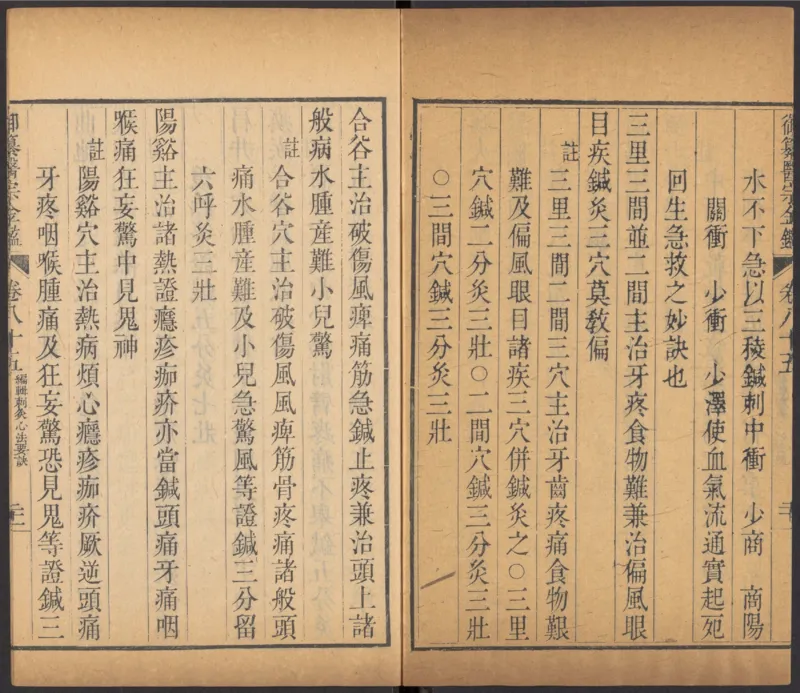 御纂醫宗金鑑 卷八十五
水不下急以三稜鍼刺中衝 少商 商陽
關衝 少衝 少澤使血氣流通實起死
回生急救之妙訣也
三里三間並二間主治牙疼食物難兼治偏風眼
目疾鍼灸三穴莫教偏
註 三里三間二間三穴主治牙齒疼痛食物艱
難及偏風眼目諸疾三穴併鍼灸之○三里
穴鍼二分灸三壯○二間穴鍼三分灸三壯
○三間穴鍼三分灸三壯
合谷主治破傷風痺痛筋急鍼止疼兼治頭上諸
般病水腫產難小兒驚
註 合谷穴主治破傷風風痺筋骨疼痛諸般頭
痛水腫產難及小兒急驚風等證鍼三分留
六呼灸三壯
陽谿主治諸熱證癮疹痂疥亦當鍼頭痛牙痛咽
喉痛狂妄驚中見鬼神
註 陽谿穴主治熱病煩心癮疹痂疥厥逆頭痛
牙疼咽喉腫痛及狂妄驚恐見鬼等證鍼三
御纂醫宗金鑑 卷八十五 編輯刺灸心法要訣